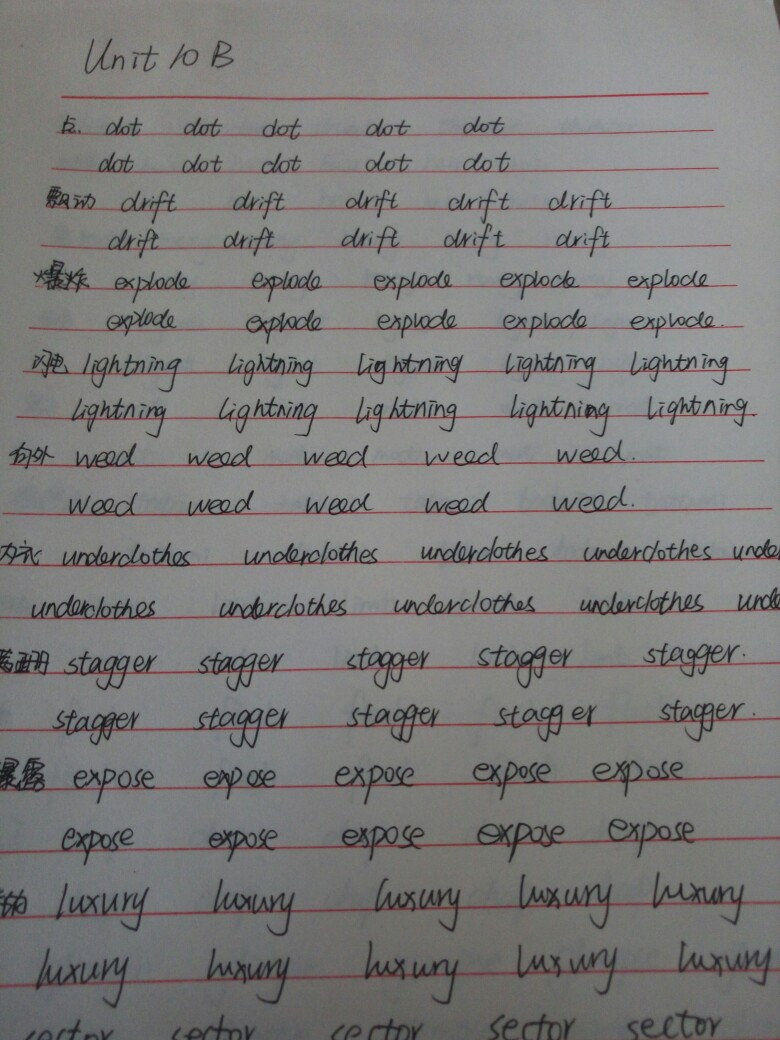 Unit 10 B
点. dot dot dot dot dot
dot dot dot dot dot
飘动 drift drift drift drift drift
drift drift drift drift drift
爆炸 explode explode explode explode explode
explode explode explode explode explode.
闪电 lightning lightning lightning lightning lightning
lightning lightning lightning lightning lightning.
向外 weed weed weed weed weed.
weed weed weed weed weed.
内衣 underclothes underclothes underclothes underclothes unde
underclothes underclothes underclothes underclothes unde
蹒跚 stagger stagger stagger stagger stagger.
stagger stagger stagger stagger stagger.
暴露 expose expose expose expose expose
expose expose expose expose expose
luxury luxury luxury luxury luxury
luxury luxury luxury luxury luxury
sector sector sector sector sector